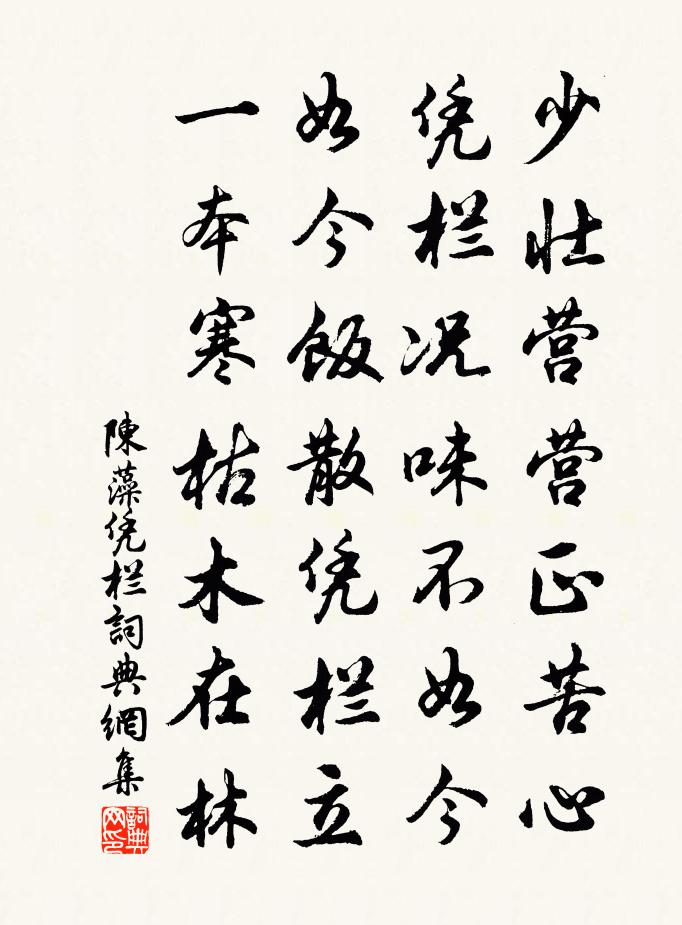 少壮营营正苦心
凭栏况味不如今
如今饭散凭栏立
一本寒枯木在林
陳藻凭栏詞典網集
詞典网印